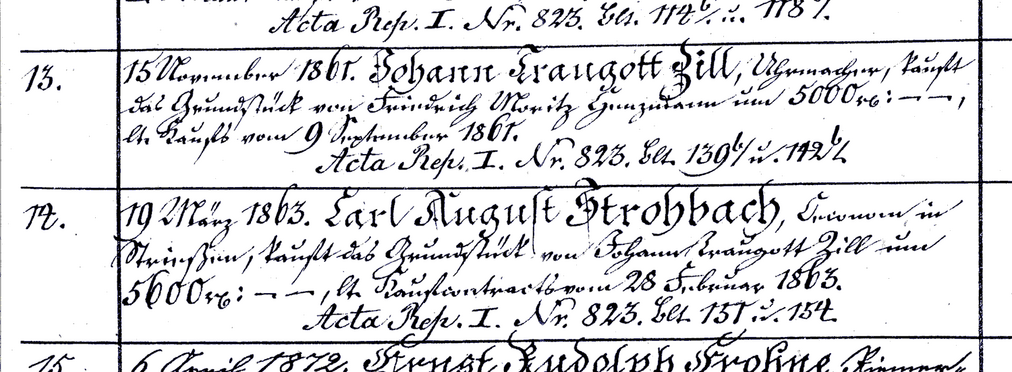 Acta Rep. I. Nr. 823. Blt. 114b/. u. 118/.
13. 15 November 1861. Johann Traugott Zill, Uhrmacher, kauft
das Grundstück von Friedrich Moritz um 5000 rp: — —,
lt. Kaufs vom 9 September 1861.
Acta Rep. I. Nr. 823. Blt. 139b/ u. 142b/.
14. 19 März 1863. Carl August Strohbach, Oeconom in
Striessen, kauft das Grundstück von Johann Traugott Zill um
5600 rp: — —, lt. Kaufcontracts vom 28 Februar 1863.
Acta Rep. I. Nr. 823. Blt. 151 u. 154.
15. 6 April 1872. Ernst Rudolph Frohne, Riemer-